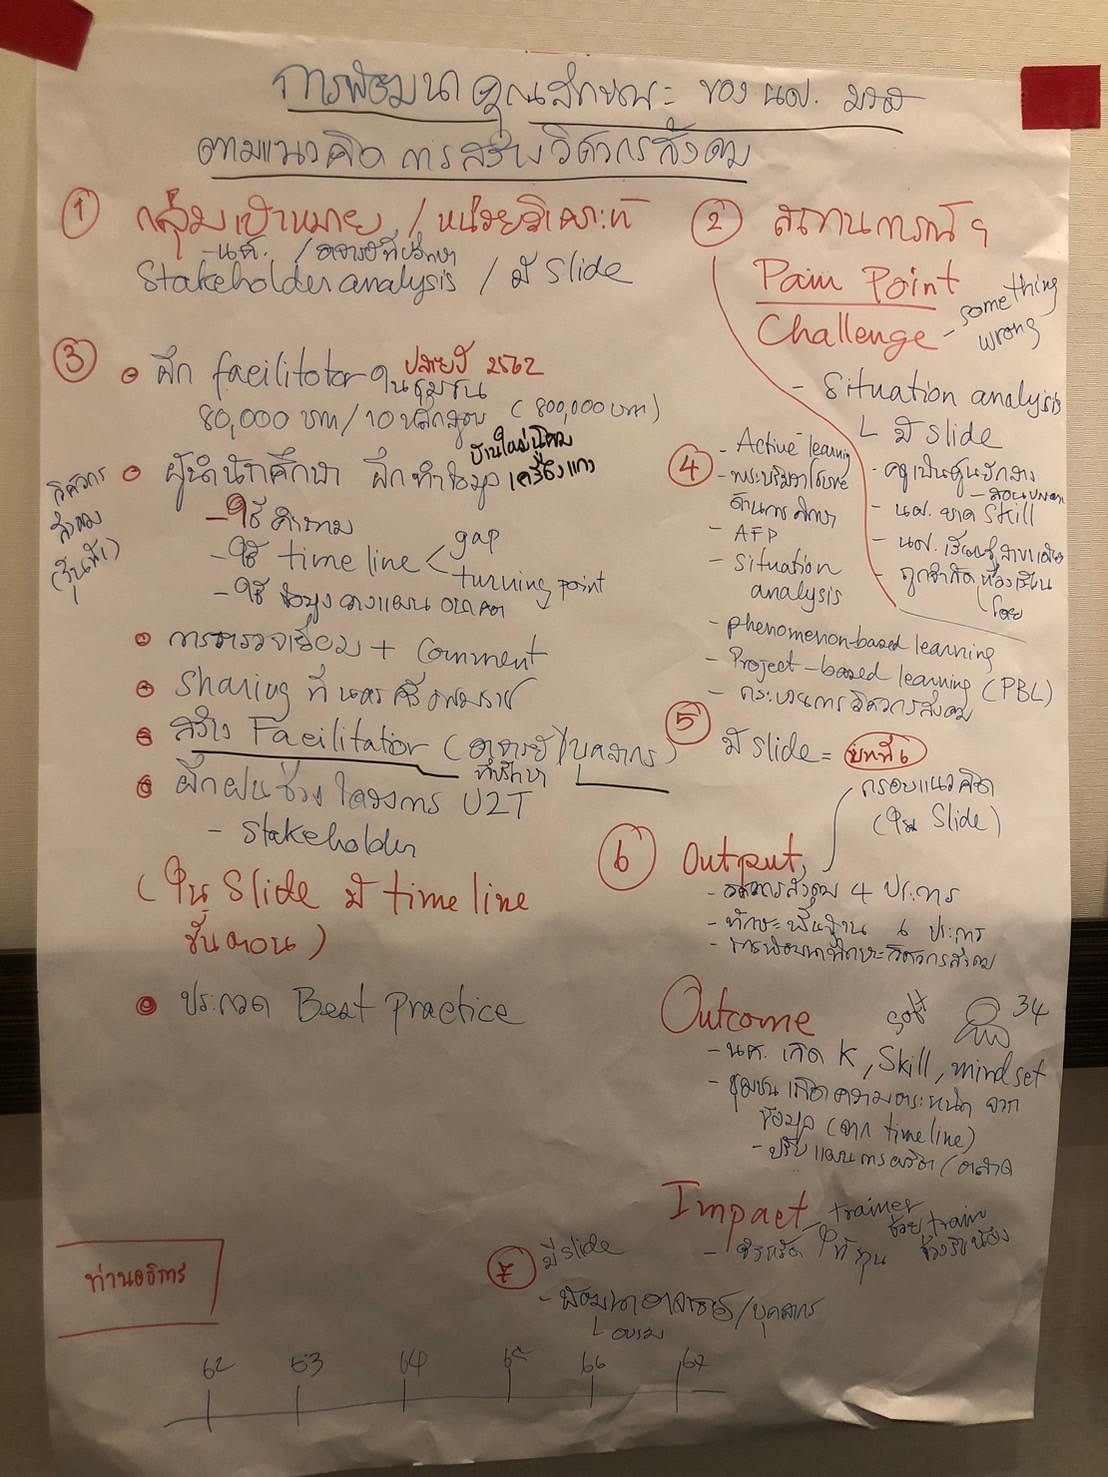 การพัฒนาคุณลักษณะ ของ นศ. มวล
ตามแนวคิด การสร้างวิศวกรสังคม
① กลุ่มเป้าหมาย / หน่วยวิเคราะห์
- นศ. / อาจารย์ที่ปรึกษา
Stakeholder analysis / มี Slide
② สถานการณ์ฯ
Pain Point
Challenge - something wrong
- Situation analysis
└ มี slide
- ครูเป็นศูนย์กลาง
- นศ. ขาด Skill
③ ฝึก facilitator ในชุมชน
ปลายปี 2562
80,000 บาท / 10 หลักสูตร (800,000 บาท)
วิศวกร
สังคม
ผู้นำนักศึกษา ฝึกทำข้อมูล
บ้านใหม่
- ใช้คำถาม
- ใช้ timeline < gap
turning point
- ใช้ ข้อมูลวางแผนอนาคต
การตรวจเยี่ยม + Comment
Sharing ที่ นครศรีธรรมราช
สร้าง Facilitator (อาจารย์) / บุคลากร
ที่ปรึกษา
ฝึกฝนช่วงโครงการ U2T
- Stakeholder
(ใน Slide มี timeline
ขั้นตอน)
ประกวด Best Practice
④ - Active learning
- พระบรมราโชบาย
ด้านการศึกษา
- AFP
- Situation
analysis
- phenomenon-based learning
- Project-based learning (PBL)
- กระบวนการวิศวกรสังคม
⑤ มี slide = บทที่ 6
กรอบแนวคิด
(ใน Slide)
⑥ Output
- วิศวกรสังคม 4 ประการ
- ทักษะพื้นฐาน 6 ประการ
- การพัฒนาทักษะวิศวกรสังคม
Outcome
34
- นศ. เกิด K, Skill, mindset
- ชุมชน เกิดความตระหนัก จาก
ข้อมูล (จาก timeline)
- ปรับแผนการผลิต / ตลาด
Impact
trainer
ช่วย train
มี slide
- พัฒนาอาจารย์ / บุคลากร
└ อบรม
ท่านอธิการ
62 63 64 65 66 67